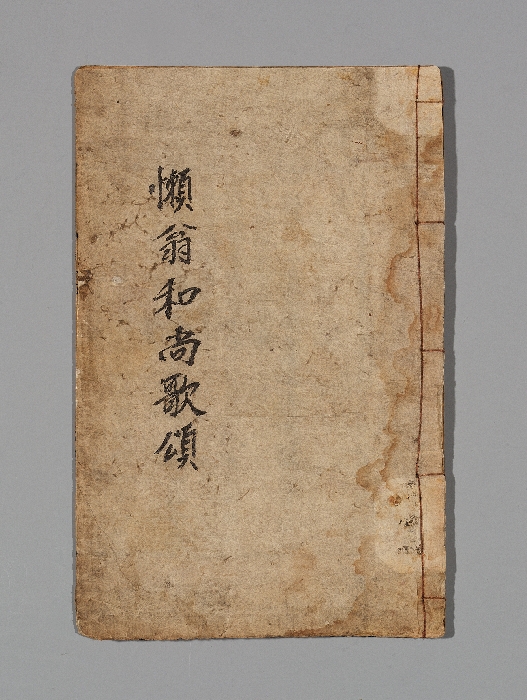 懶翁和尚歌頌